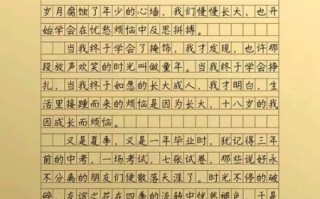 岁月腐蚀了年少的心墙，我们慢慢长大，也开
始学会在忧愁烦恼中反思拼搏。
当我终于学会了掩饰，我才发现，也许那
段放声欢笑的时光叫做童年。当我终于学会挣
扎，当我终于如愿的长大成人，我才明白，生
活里接踵而来的烦恼是因为长大，十八岁的我
因成长而烦恼。
又是夏季，又是一年毕业时，犹记得三年
前的中考，一场考试，七张试卷，那些说好永
不分离的朋友们便散落天涯了。时光不停的破
碎，友谊之花在四季的流转中恍然褪色，于是